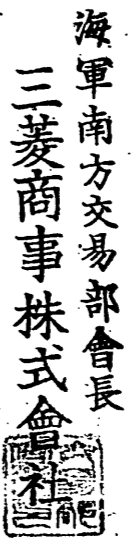 海軍南方交易部會長
三菱商事株式會社